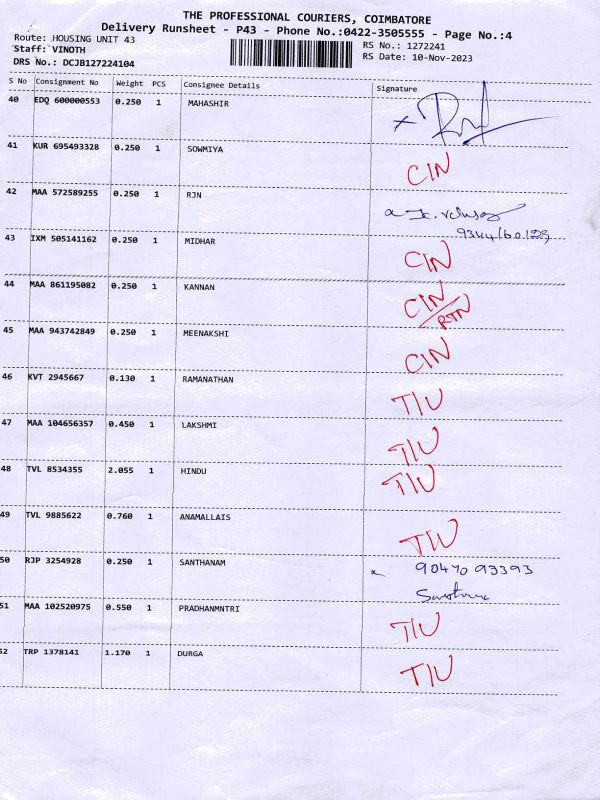 THE PROFESSIONAL COURIERS, COIMBATORE
Delivery Runsheet - P43 - Phone No.:0422-3505555 - Page No.:4
Route: HOUSING UNIT 43
RS No.: 1272241
Staff: VINOTH
RS Date: 10-Nov-2023
DRS No.: DCJB127224104
S No Consignment No Weight PCS Consignee Details Signature
40 EDQ 600000553 0.250 1 MAHASHIR
41 KUR 695493328 0.250 1 SOWMIYA CIN
42 MAA 572589255 0.250 1 RJN
43 IXM 505141162 0.250 1 MIDHAR CIN
44 MAA 861195082 0.250 1 KANNAN CIN/RTN
45 MAA 943742849 0.250 1 MEENAKSHI CIN
46 KVT 2945667 0.130 1 RAMANATHAN TIU
47 MAA 104656357 0.450 1 LAKSHMI TIU
48 TVL 8534355 2.055 1 HINDU TIU
49 TVL 9885622 0.760 1 ANAMALLAIS TIU
50 RJP 3254928 0.250 1 SANTHANAM 90470 93393
51 MAA 102520975 0.550 1 PRADHANMNTRI TIU
52 TRP 1378141 1.170 1 DURGA TIU